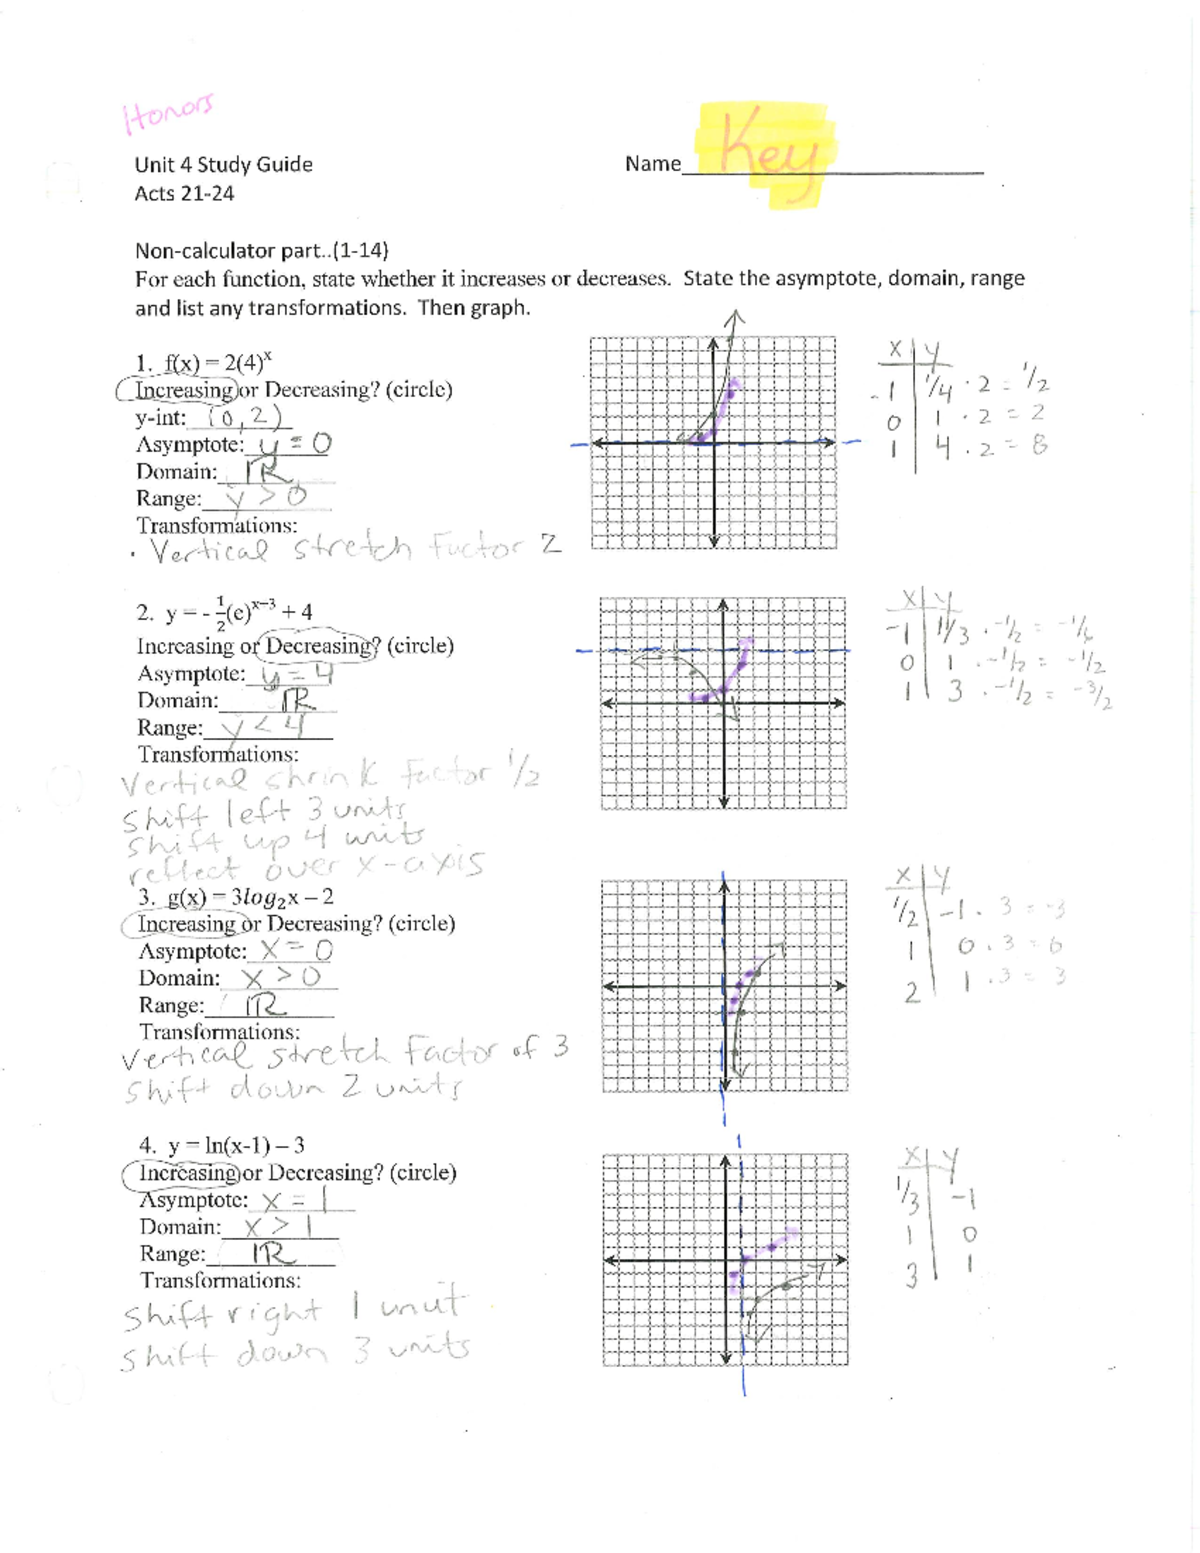 Honors
Key
Unit 4 Study Guide
Name
Acts 21-24
Non-calculator part..(1-14)
For each function, state whether it increases or decreases. State the asymptote, domain, range
and list any transformations. Then graph.
1. f(x) = 2(4)^x
Increasing or Decreasing? (circle)
y-int: (0,2)
Asymptote: y = 0
Domain: ℝ
Range: y > 0
Transformations:
· Vertical stretch factor 2
x | y
-1 | 1/4 · 2 = 1/2
0 | 1 · 2 = 2
1 | 4 · 2 = 8
2. y = - 1/2(e)^x-3 + 4
Increasing or Decreasing? (circle)
Asymptote: y = 4
Domain: ℝ
Range: y < 4
Transformations:
Vertical shrink factor 1/2
shift left 3 units
shift up 4 units
reflect over x-axis
x | y
-1 | 1/3 · -1/2 = -1/6
0 | 1 · -1/2 = -1/2
1 | 3 · -1/2 = -3/2
3. g(x) = 3log₂x – 2
Increasing or Decreasing? (circle)
Asymptote: x = 0
Domain: x > 0
Range: ℝ
Transformations:
Vertical stretch factor of 3
Shift down 2 units
x | y
1/2 | -1 · 3 = -3
1 | 0 · 3 = 0
2 | 1 · 3 = 3
4. y = ln(x-1) – 3
Increasing or Decreasing? (circle)
Asymptote: x = 1
Domain: x > 1
Range: ℝ
Transformations:
shift right 1 unit
shift down 3 units
x | y
1/3 | -1
1 | 0
3 | 1